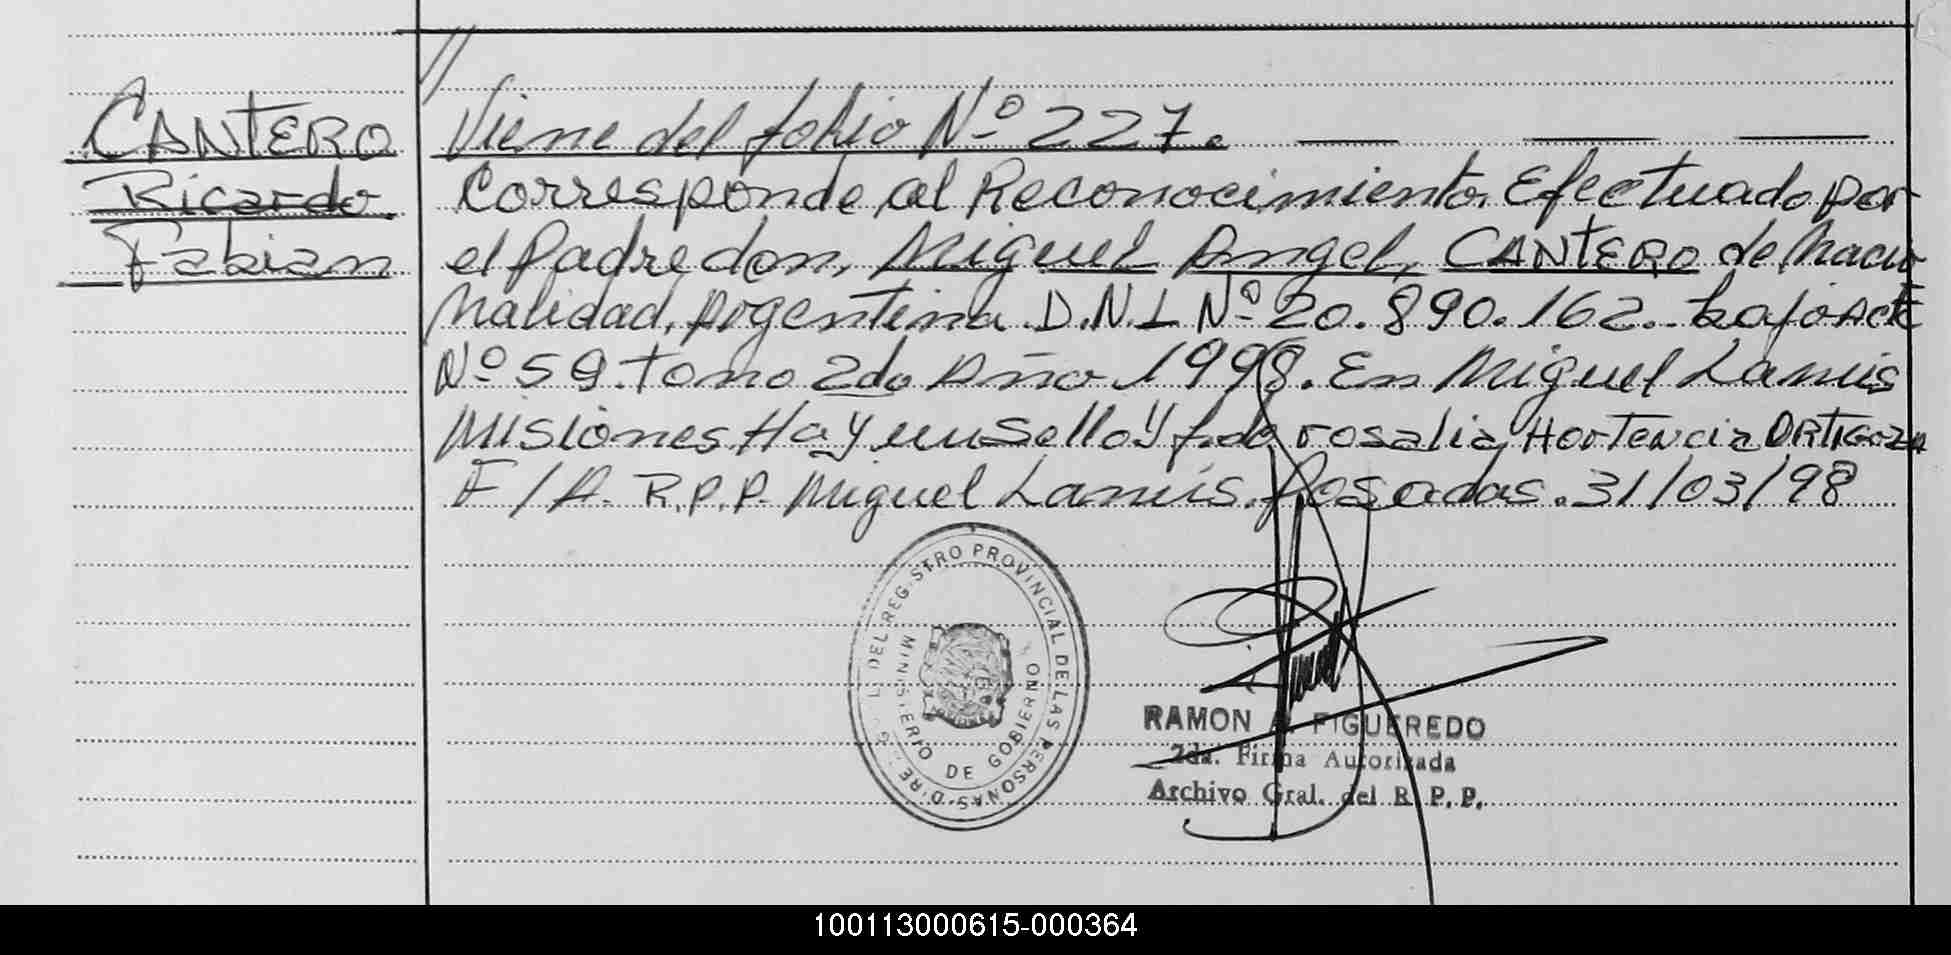 CANTERO
Ricardo
Fabian
// Viene del folio Nº 227.
Corresponde al Reconocimiento Efectuado por
el Padre, don, Miguel Angel, CANTERO de Nacio
nalidad, Argentina D.N.I Nº 20.890.162. bajo Acta
Nº 59 tomo 2do Año 1998. En Miguel Lanus
Misiones Hay un sello y fdo rosalia Hortencia ORTIGOZA
F/A. R.P.P. Miguel Lanús. Posadas. 31/03/98
DEL REGISTRO PROVINCIAL DE LAS PERSONAS
MINISTERIO DE GOBIERNO
RAMON A. FIGUEREDO
2da. Firma Autorizada
Archivo Gral. del R. P. P.
100113000615-000364